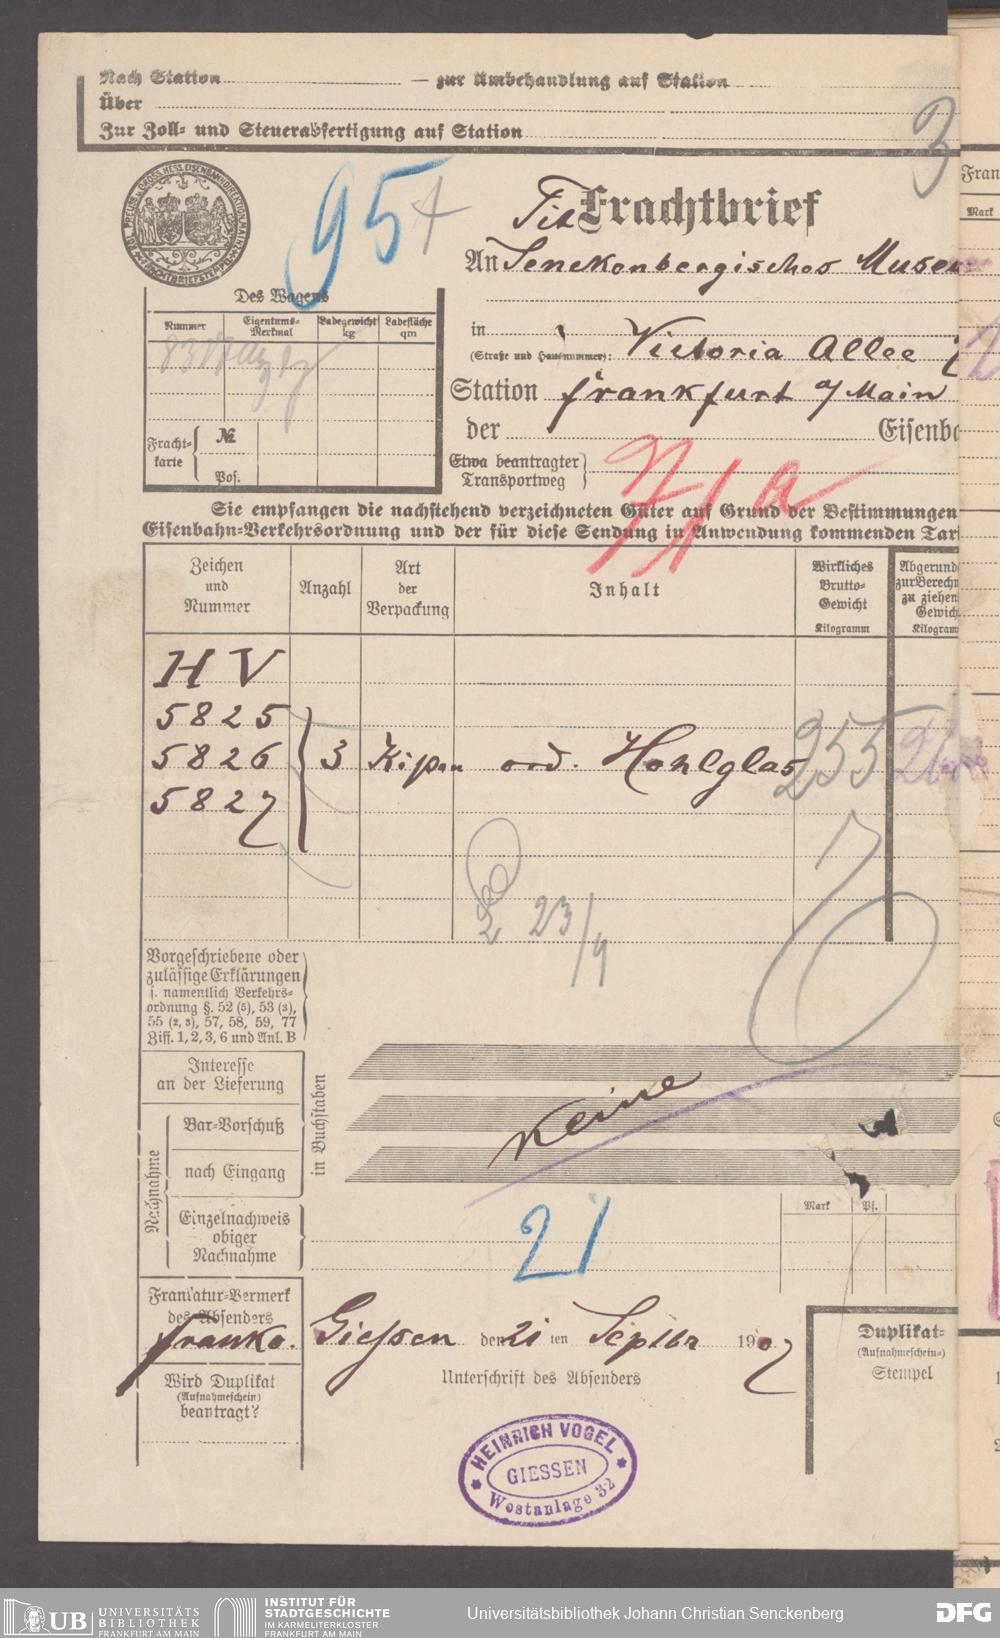 Nach Station — zur Umbehandlung auf Station
Über
Zur Zoll- und Steuerabfertigung auf Station
3
95
Frachtbrief
An Senckenbergisches Museu
in
(Straße und Hausnummer): Victoria Allee 7
Station Frankfurt a/Main
der Eisenba
Etwa beantragter
Transportweg
Des Wagens
Nummer
Eigentums-
Merkmal
Ladegewicht
kg
Ladefläche
qm
Fracht-
karte
№
Pos.
Sie empfangen die nachstehend verzeichneten Güter auf Grund der Bestimmungen
Eisenbahn-Verkehrsordnung und der für diese Sendung in Anwendung kommenden Tari
Zeichen
und
Nummer
Anzahl
Art
der
Verpackung
Inhalt
Wirkliches
Brutto-
Gewicht
Kilogramm
Abgerund
zur Berechn
zu ziehen
Gewich
Kilogram
H V
5825
5826 3 Kisten ord. Hohlglas 255
5827
23/9
Vorgeschriebene oder
zulässige Erklärungen
s. namentlich Verkehrs-
ordnung §. 52 (5), 53 (3),
55 (2, 3), 57, 58, 59, 77
Ziff. 1, 2, 3, 6 und Anl. B
Interesse
an der Lieferung
Nachnahme
Bar-Vorschuß
nach Eingang
in Buchstaben
Keine
Einzelnachweis
obiger
Nachnahme
21
Mark Pf.
Frankatur-Vermerk
des Absenders
franko.
Giessen den 21 ten Septbr 1907
Unterschrift des Absenders
Wird Duplikat
(Aufnahmeschein)
beantragt?
Duplikat-
(Aufnahmeschein-)
Stempel
HEINRICH VOGEL
GIESSEN
Westanlage 32
Fran
Mark
UB UNIVERSITÄTS
BIBLIOTHEK
FRANKFURT AM MAIN
INSTITUT FÜR
STADTGESCHICHTE
IM KARMELITERKLOSTER
FRANKFURT AM MAIN
Universitätsbibliothek Johann Christian Senckenberg
DFG